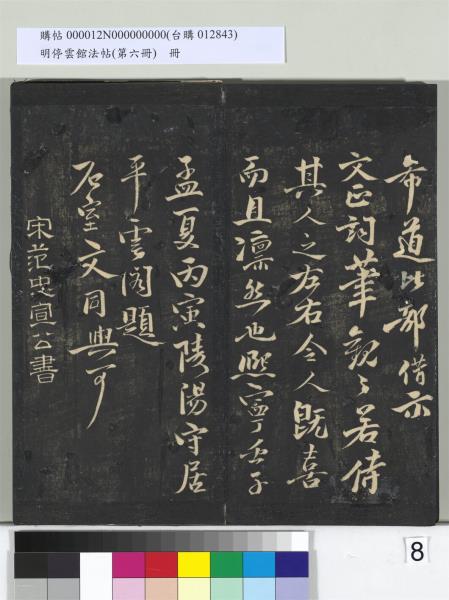 購帖 000012N000000000(台購 012843)
明停雲館法帖(第六冊) 冊
希道比部借示
文正詞筆觀之若侍
其人之左右令人既喜
而且凜然也熙寧壬子
孟夏丙寅陵陽守居
平雲閣題
石室文同與可
宋范忠宣公書
8